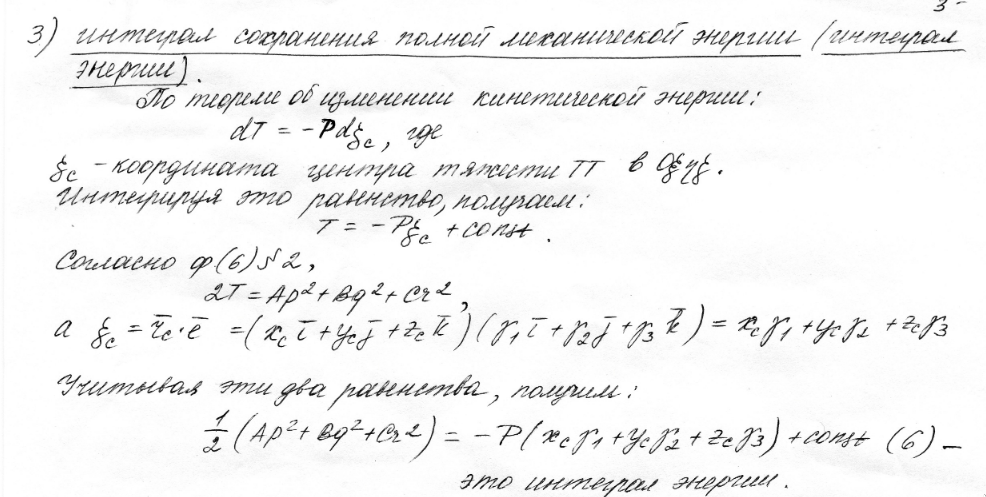 3) интеграл сохранения полной механической энергии (интеграл
энергии).
По теореме об изменении кинетической энергии:
dT = -Pdξc, где
ξc - координата центра тяжести ТТ в Oξηζ.
Интегрируя это равенство, получаем:
T = -Pξc + const.
Согласно ф(6) §2,
2T = Ap² + Bq² + Cr²,
а ξc = r̄c·ē = (xc ī + yc j̄ + zc k̄)(γ1 ī + γ2 j̄ + γ3 k̄) = xcγ1 + ycγ2 + zcγ3
Учитывая эти два равенства, получим:
1/2 (Ap² + Bq² + Cr²) = -P(xcγ1 + ycγ2 + zcγ3) + const (6) -
это интеграл энергии.